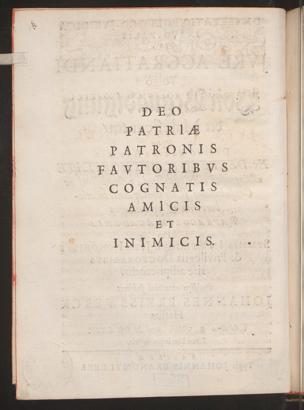 DEO
PATRIÆ
PATRONIS
FAVTORIBVS
COGNATIS
AMICIS
ET
INIMICIS.